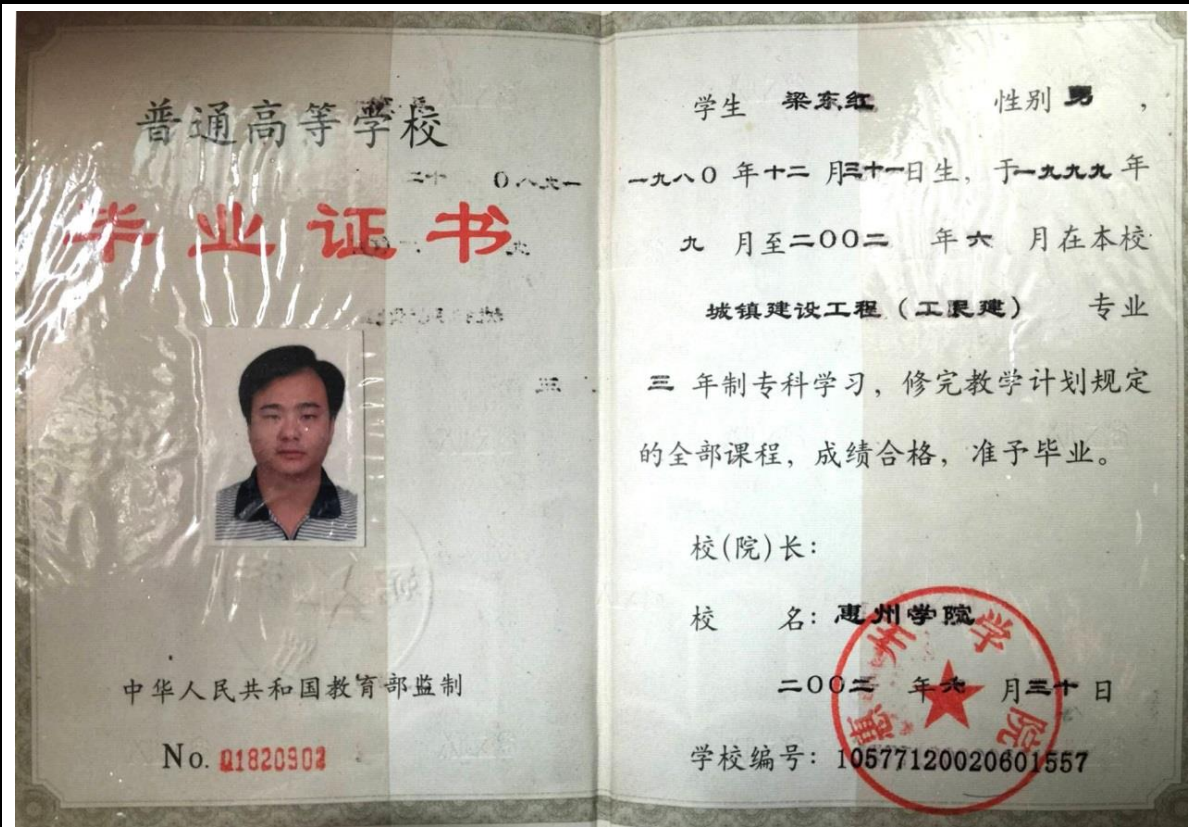 普通高等学校
毕业证书
中华人民共和国教育部监制
No. 01820902
学生 梁东红 性别 男，
一九八〇 年十二 月三十一日生，于一九九九 年
九 月至二〇〇二 年六 月在本校
城镇建设工程（工民建） 专业
三 年制专科学习，修完教学计划规定
的全部课程，成绩合格，准予毕业。
校(院)长：
校 名：惠州学院
二〇〇二 年六 月三十日
学校编号：10577120020601557
惠州学院